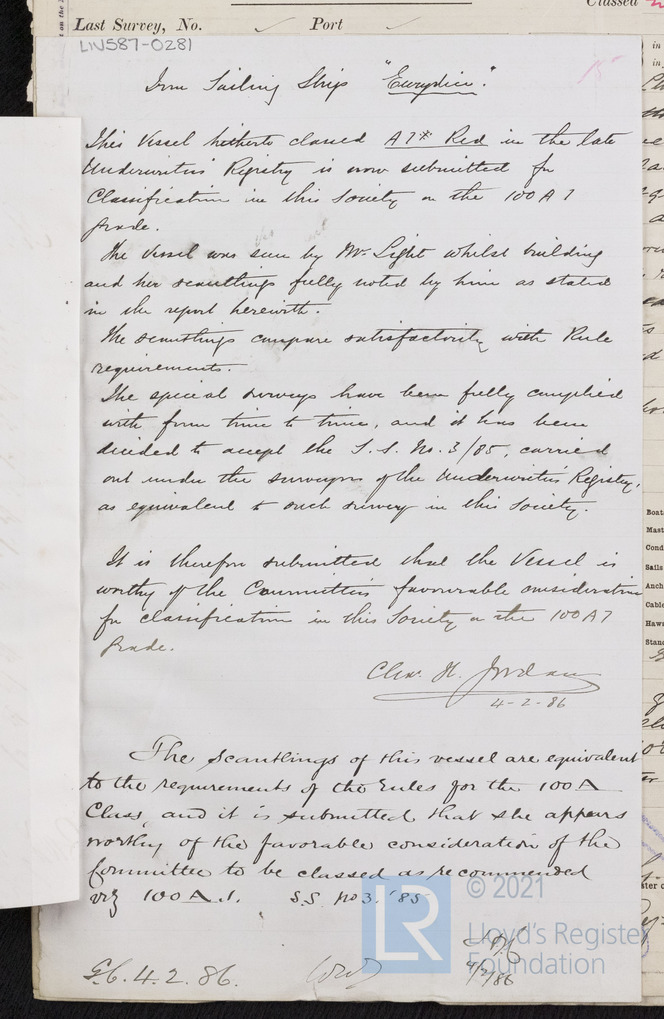 Classed
Last Survey, No. Port
LN587-0281
Iron Sailing Ship "Eurydice".
This Vessel hitherto classed A1* Red in the late
Underwriters' Registry is now submitted for
Classification in this Society on the 100 A 1
grade.
The Vessel was seen by Mr. Light whilst building
and her scantlings fully noted by him as stated
in the report herewith.
The scantlings compare satisfactorily with Rule
requirements.
The special surveys have been fully complied
with from time to time, and it has been
decided to accept the S.S. No. 3/85, carried
out under the surveyors of the Underwriters' Registry,
as equivalent to such survey in this Society.
It is therefore submitted that the Vessel is
worthy of the Committee's favourable consideration
for classification in this Society on the 100 A 1
grade.
Chas. H. Jordan
4-2-86
The Scantlings of this vessel are equivalent
to the requirements of the Rules for the 100A
Class, and it is submitted that she appears
worthy of the favorable consideration of the
Committee to be classed as recommended
viz 100 A.1. S.S. No 3. '85
LR © 2021
Lloyd's Register
Foundation
4/2/86
4.2.86.
Boats
Mast
Cond
Sails
Anch
Cable
Haws
Stand